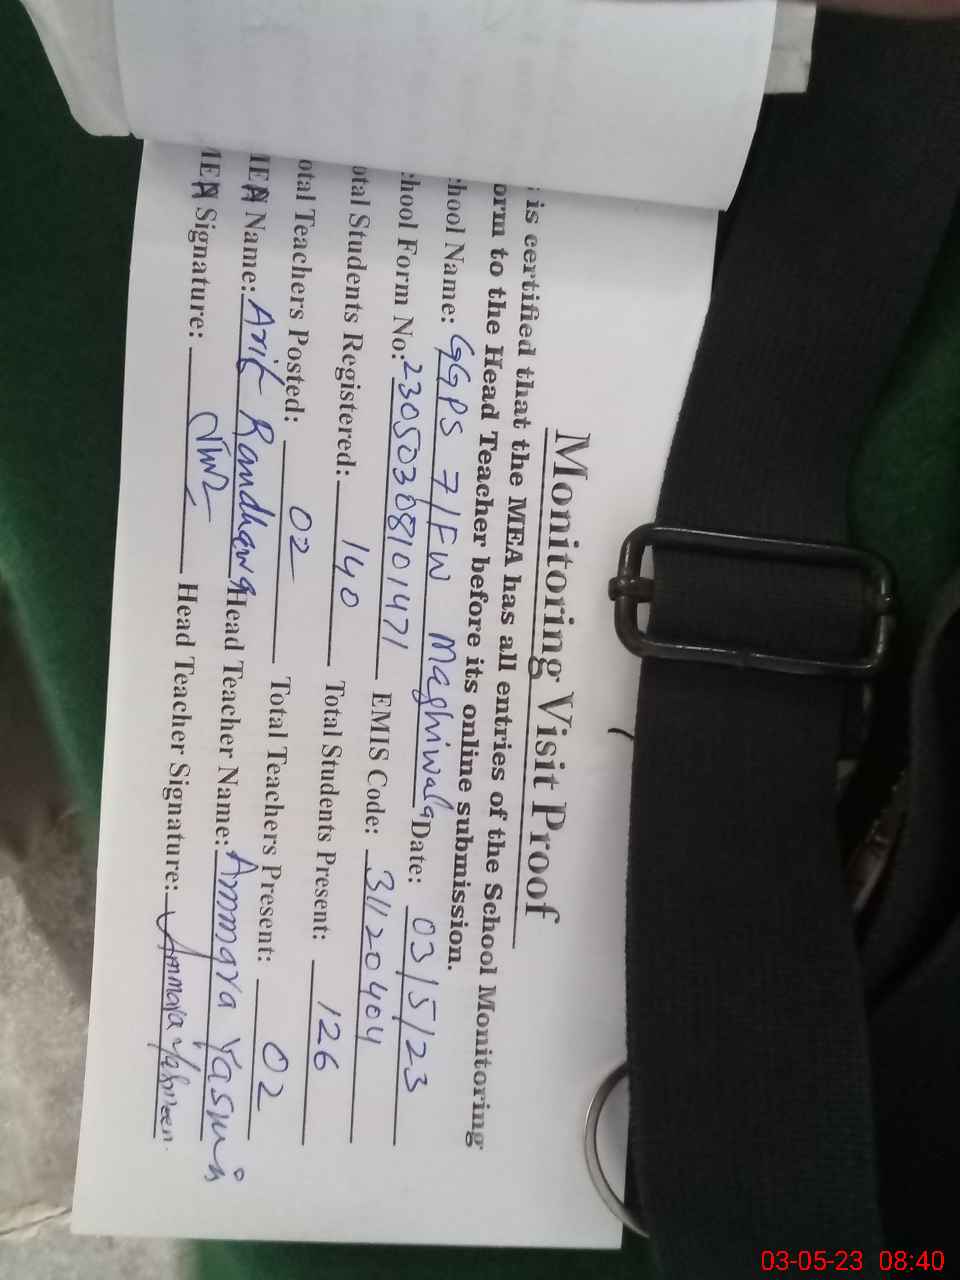 Monitoring Visit Proof
is certified that the MEA has all entries of the School Monitoring
orm to the Head Teacher before its online submission.
chool Name: GGPS 71FW Maghiwala Date: 03/5/23
chool Form No: 23050308101471 EMIS Code: 31120404
otal Students Registered: 140 Total Students Present: 126
otal Teachers Posted: 02 Total Teachers Present: 02
MEA Name: Arif Randhawa Head Teacher Name: Ammara Yasmin
MEA Signature: Head Teacher Signature: Ammara Yasmeen
03-05-23 08:40